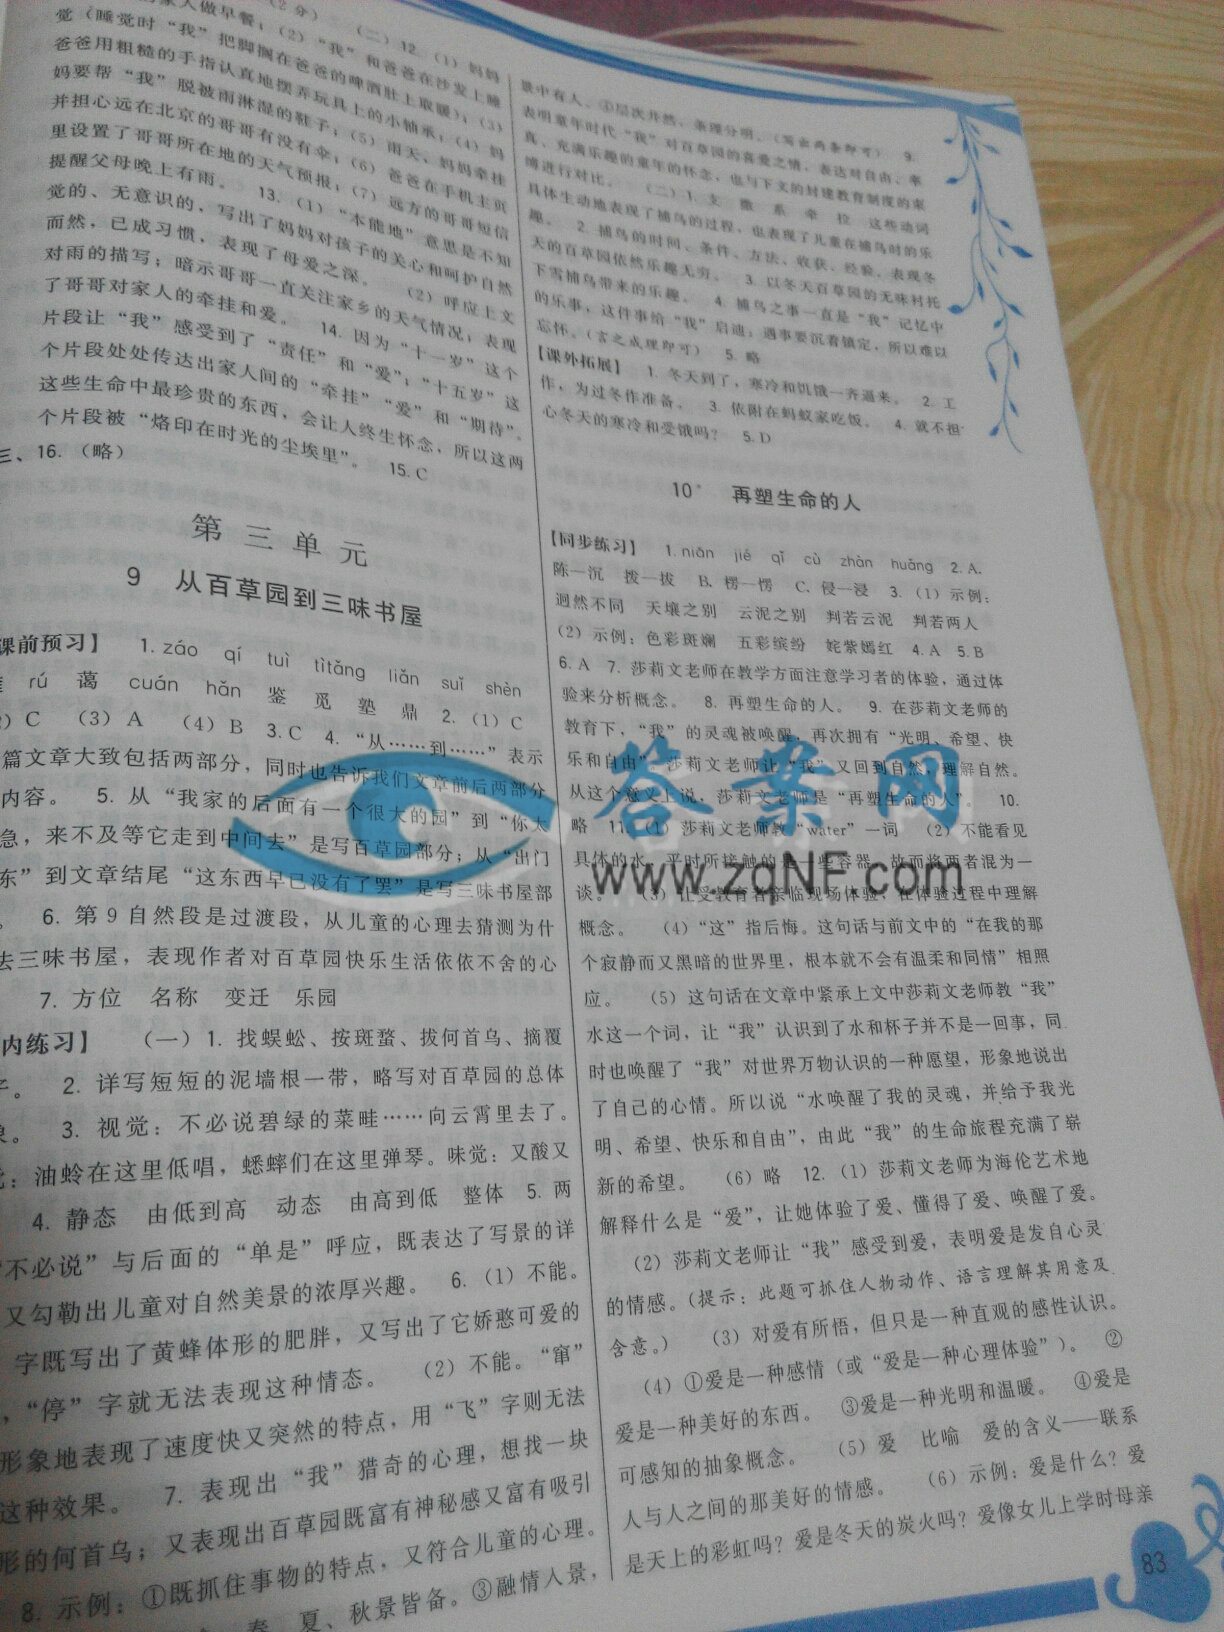 家人做早餐；（2）“我”和爸爸在沙发上睡
（2分） （二）12.（1）妈妈
觉（睡觉时“我”把脚搁在爸爸的啤酒肚上取暖）；（3）
爸爸用粗糙的手指认真地摆弄玩具上的小轴承；（4）妈
妈要帮“我”脱被雨淋湿的鞋子；（5）雨天，妈妈牵挂
并担心远在北京的哥哥有没有伞；（6）爸爸在手机主页
里设置了哥哥所在地的天气预报；（7）远方的哥哥短信
提醒父母晚上有雨。 13.（1）“本能地”意思是不知
觉的、无意识的，写出了妈妈对孩子的关心和呵护自然
而然，已成习惯，表现了母爱之深。 （2）呼应上文
对雨的描写；暗示哥哥一直关注家乡的天气情况，表现
了哥哥对家人的牵挂和爱。 14. 因为“十一岁”这个
片段让“我”感受到了“责任”和“爱”；“十五岁”这
个片段处处传达出家人间的“牵挂”“爱”和“期待”。
这些生命中最珍贵的东西，会让人终生怀念，所以这两
个片段被“烙印在时光的尘埃里”。 15. C
三、16.（略）
第三单元
9 从百草园到三味书屋
课前预习】 1. záo qí tuì tìtǎng liǎn suǐ shèn
rú 蔼 cuán hǎn 鉴 觅 塾 鼎 2.（1）C
）C （3）A （4）B 3. C 4. “从……到……”表示
篇文章大致包括两部分，同时也告诉我们文章前后两部分
内容。 5. 从“我家的后面有一个很大的园”到“你太
急，来不及等它走到中间去”是写百草园部分；从“出门
东”到文章结尾“这东西早已没有了罢”是写三味书屋部
。 6. 第9自然段是过渡段，从儿童的心理去猜测为什
去三味书屋，表现作者对百草园快乐生活依依不舍的心
7. 方位 名称 变迁 乐园
内练习】 （一）1. 找蜈蚣、按斑蝥、拔何首乌、摘覆
子。 2. 详写短短的泥墙根一带，略写对百草园的总体
象。 3. 视觉：不必说碧绿的菜畦……向云霄里去了。
：油蛉在这里低唱，蟋蟀们在这里弹琴。味觉：又酸又
4. 静态 由低到高 动态 由高到低 整体 5. 两
“不必说”与后面的“单是”呼应，既表达了写景的详
又勾勒出儿童对自然美景的浓厚兴趣。 6.（1）不能。
字既写出了黄蜂体形的肥胖，又写出了它娇憨可爱的
，“停”字就无法表现这种情态。 （2）不能。“窜”
形象地表现了速度快又突然的特点，用“飞”字则无法
这种效果。 7. 表现出“我”猎奇的心理，想找一块
形的何首乌；又表现出百草园既富有神秘感又富有吸引
8. 示例：①既抓住事物的特点，又符合儿童的心理。
春、夏、秋景皆备。③融情入景，
景中有人。④层次井然、条理分明。（写出两条即可） 9.
表明童年时代“我”对百草园的喜爱之情，表达对自由、率
真、充满乐趣的童年的怀念，也与下文的封建教育制度的束
缚进行对比。 （二）1. 支 撒 系 牵 拉 这些动词
具体生动地表现了捕鸟的过程，也表现了儿童在捕鸟时的乐
趣。 2. 捕鸟的时间、条件、方法、收获、经验，表现冬
天的百草园依然乐趣无穷。 3. 以冬天百草园的无味衬托
下雪捕鸟带来的乐趣。 4. 捕鸟之事一直是“我”记忆中
的乐事，这件事给“我”启迪：遇事要沉着镇定，所以难以
忘怀。（言之成理即可） 5. 略
【课外拓展】 1. 冬天到了，寒冷和饥饿一齐逼来。 2. 工
作，为过冬作准备。 3. 依附在蚂蚁家吃饭。 4. 就不担
心冬天的寒冷和受饿吗？ 5. D
10* 再塑生命的人
【同步练习】 1. niān jié qǐ cù zhàn huǎng 2. A.
陈—沉 拨—拔 B. 楞—愣 C. 侵—浸 3.（1）示例：
迥然不同 天壤之别 云泥之别 判若云泥 判若两人
（2）示例：色彩斑斓 五彩缤纷 姹紫嫣红 4. A 5. B
6. A 7. 莎莉文老师在教学方面注意学习者的体验，通过体
验来分析概念。 8. 再塑生命的人。 9. 在莎莉文老师的
教育下，“我”的灵魂被唤醒，再次拥有“光明、希望、快
乐和自由”。莎莉文老师让“我”又回到自然，理解自然。
从这个意义上说，莎莉文老师是“再塑生命的人”。 10.
略 11.（1）莎莉文老师教“water”一词 （2）不能看见
具体的水，平时所接触的是一些容器，故而将两者混为一
谈。 （3）让受教育者亲临现场体验，在体验过程中理解
概念。 （4）“这”指后悔。这句话与前文中的“在我的那
个寂静而又黑暗的世界里，根本就不会有温柔和同情”相照
应。 （5）这句话在文章中紧承上文中莎莉文老师教“我”
水这一个词，让“我”认识到了水和杯子并不是一回事，同
时也唤醒了“我”对世界万物认识的一种愿望，形象地说出
了自己的心情。所以说“水唤醒了我的灵魂，并给予我光
明、希望、快乐和自由”，由此“我”的生命旅程充满了崭
新的希望。 （6）略 12.（1）莎莉文老师为海伦艺术地
解释什么是“爱”，让她体验了爱、懂得了爱、唤醒了爱。
（2）莎莉文老师让“我”感受到爱，表明爱是发自心灵
的情感。（提示：此题可抓住人物动作、语言理解其用意及
含意。） （3）对爱有所悟，但只是一种直观的感性认识。
（4）①爱是一种感情（或“爱是一种心理体验”）。 ②
爱是一种美好的东西。 ③爱是一种光明和温暖。 ④爱是
可感知的抽象概念。 （5）爱 比喻 爱的含义——联系
人与人之间的那美好的情感。 （6）示例：爱是什么？爱
是天上的彩虹吗？爱是冬天的炭火吗？爱像女儿上学时母亲
83
答案网
www.zqNF.com